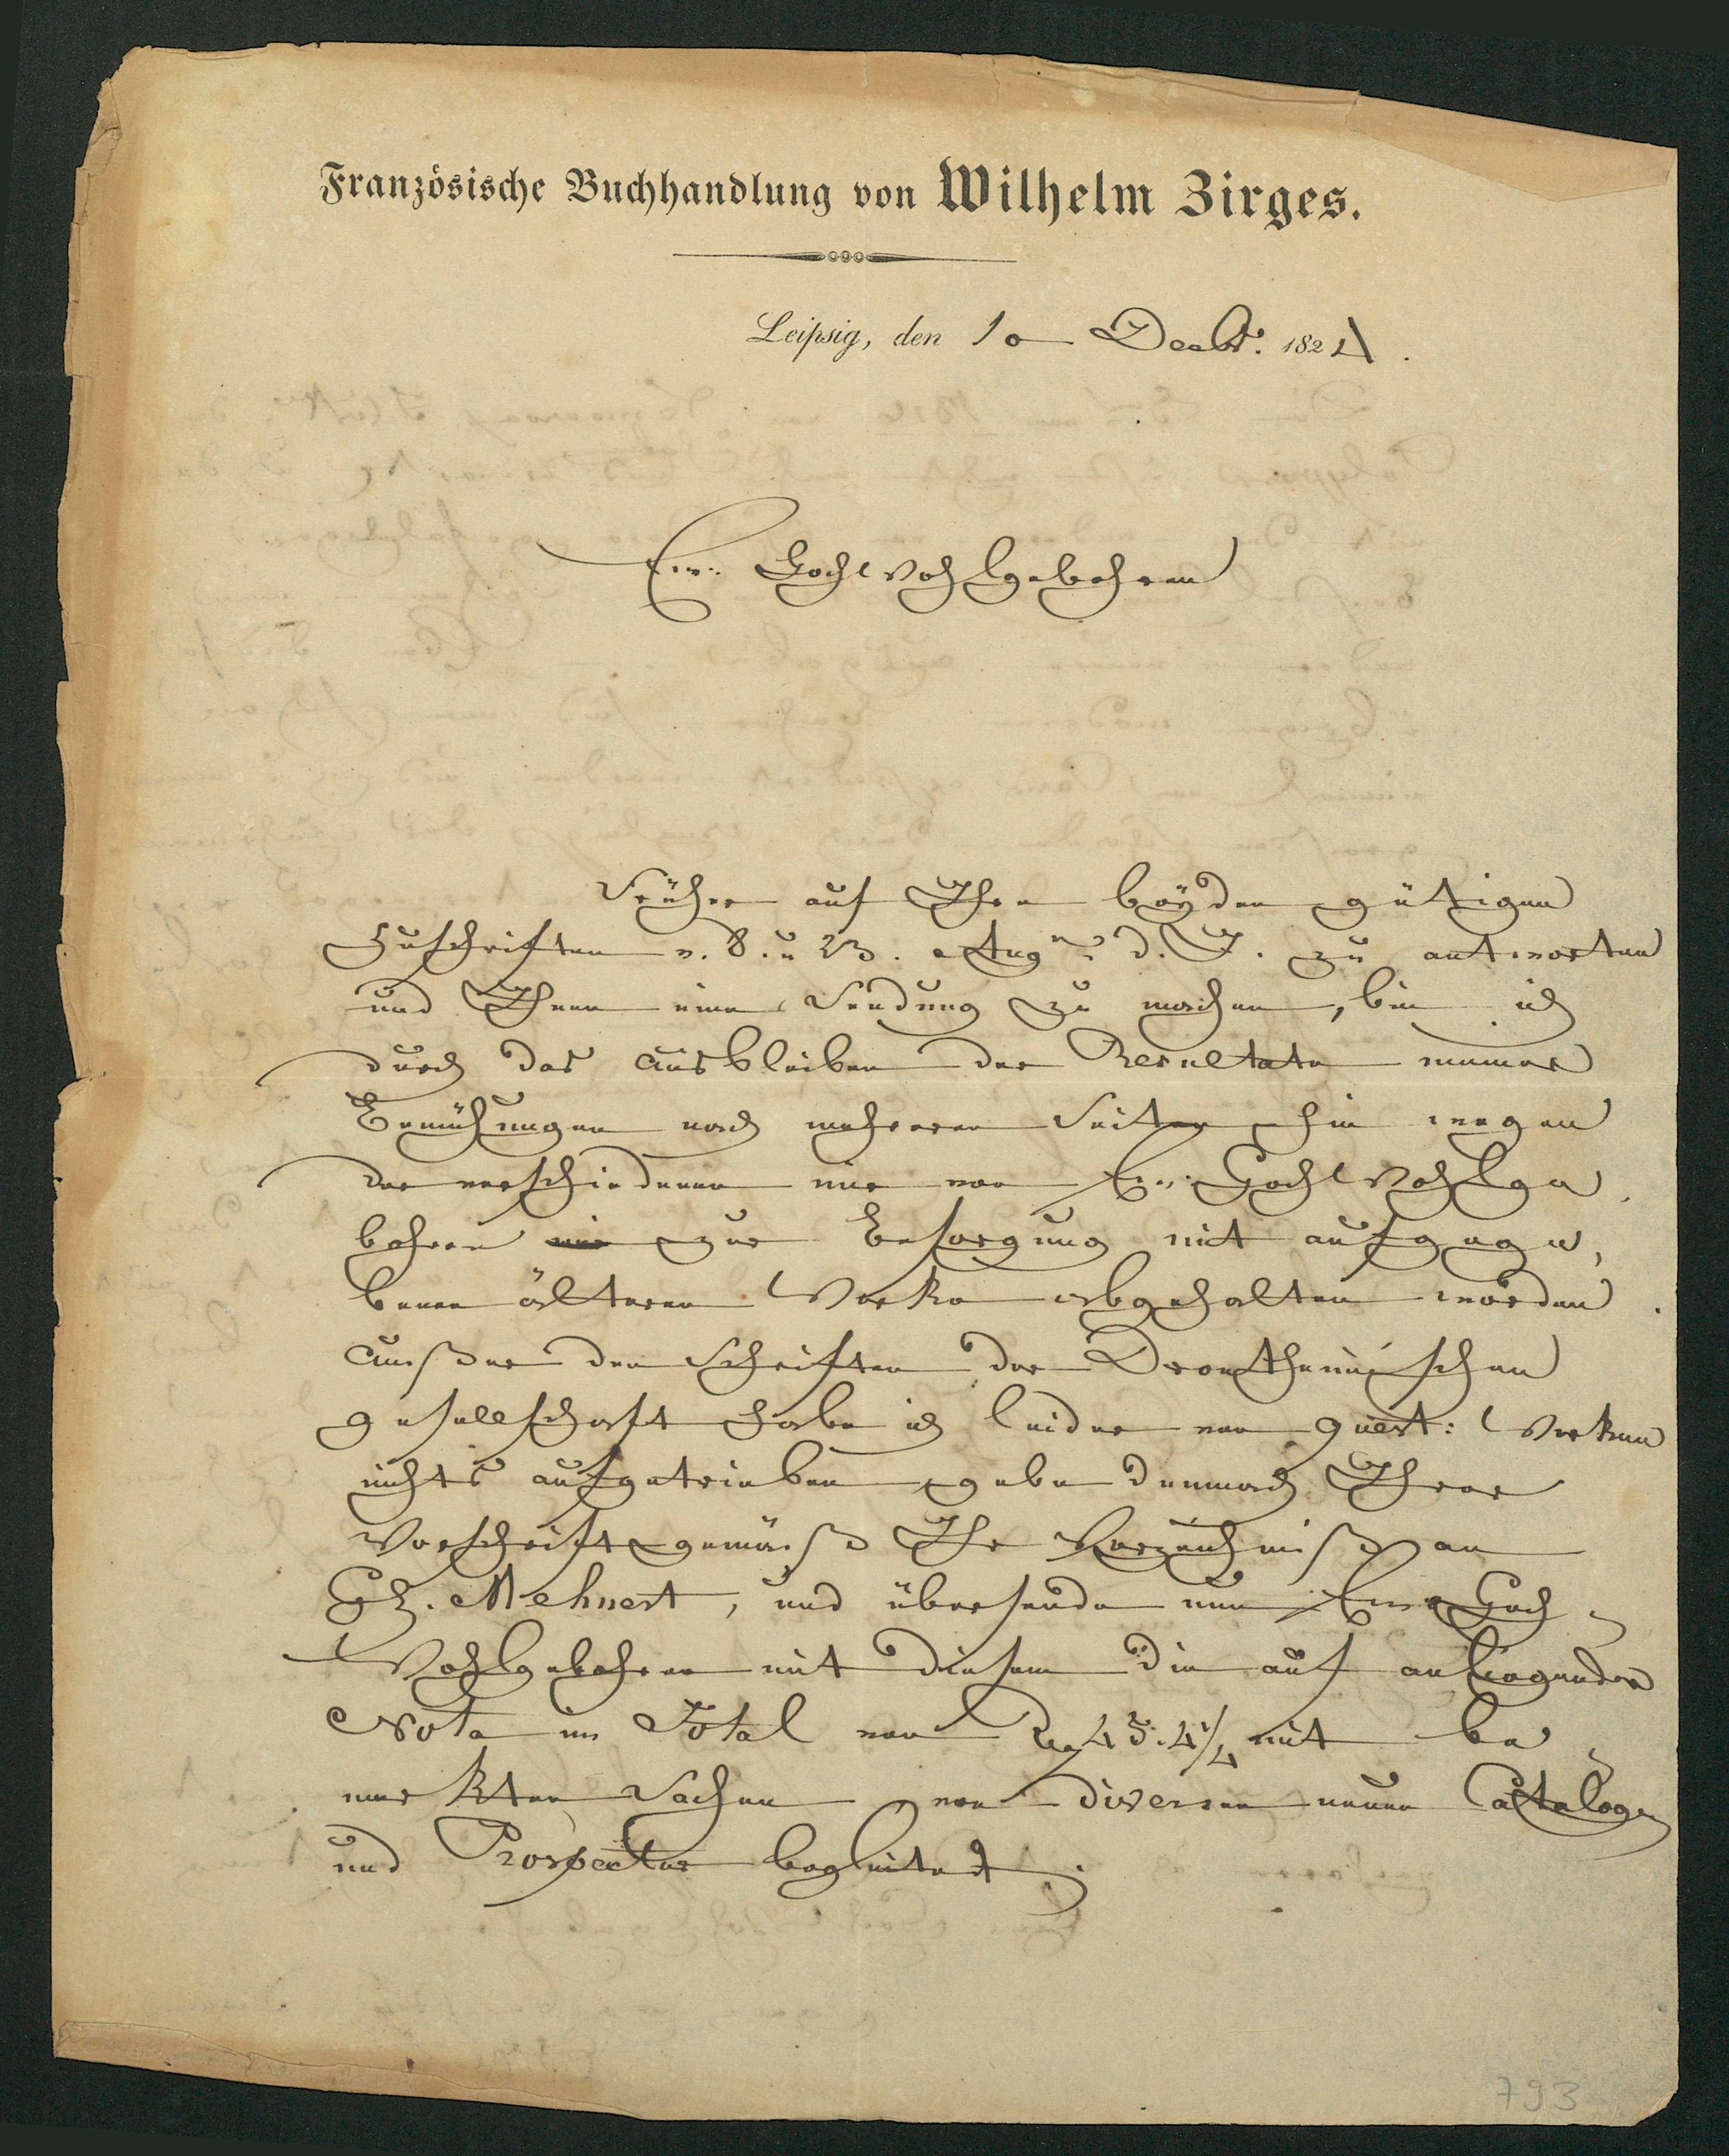 Französische Buchhandlung von Wilhelm Zirges.
Leipsig, den 10 Decbr. 1824.
Ew. Hochwohlgebohren
Früher auf Ihre beÿden gütigen
Zuschriften v. 8. u 23. Aug d. J. zu antworten
und Ihnen eine Sendung zu machen, bin ich
durch das Ausbleiben der Resultate meiner
Bemühungen nach mehreren Seiten hin wegen
der verschiedenen mir von Ew. Hochwohlge
bohren mir zur Besorgung mit aufgege
benen älteren Werke abgehalten worden.
Ausser den Schriften der Drontheimischen
Gesellschaft habe ich leider von quest: Werken
nichts aufgetrieben gebe demnach Ihrer
Vorschrift gemäss Ihr Verzeichniss an
H. Mehnert, und übersende nun Ew. Hoch
Wohlgebohren mit diesem die auf anliegender
Nota im Total von 43. 4¼ mit be
merkten Sachen von diversen neuen Cataloge
und Prospectus begleitet.
793